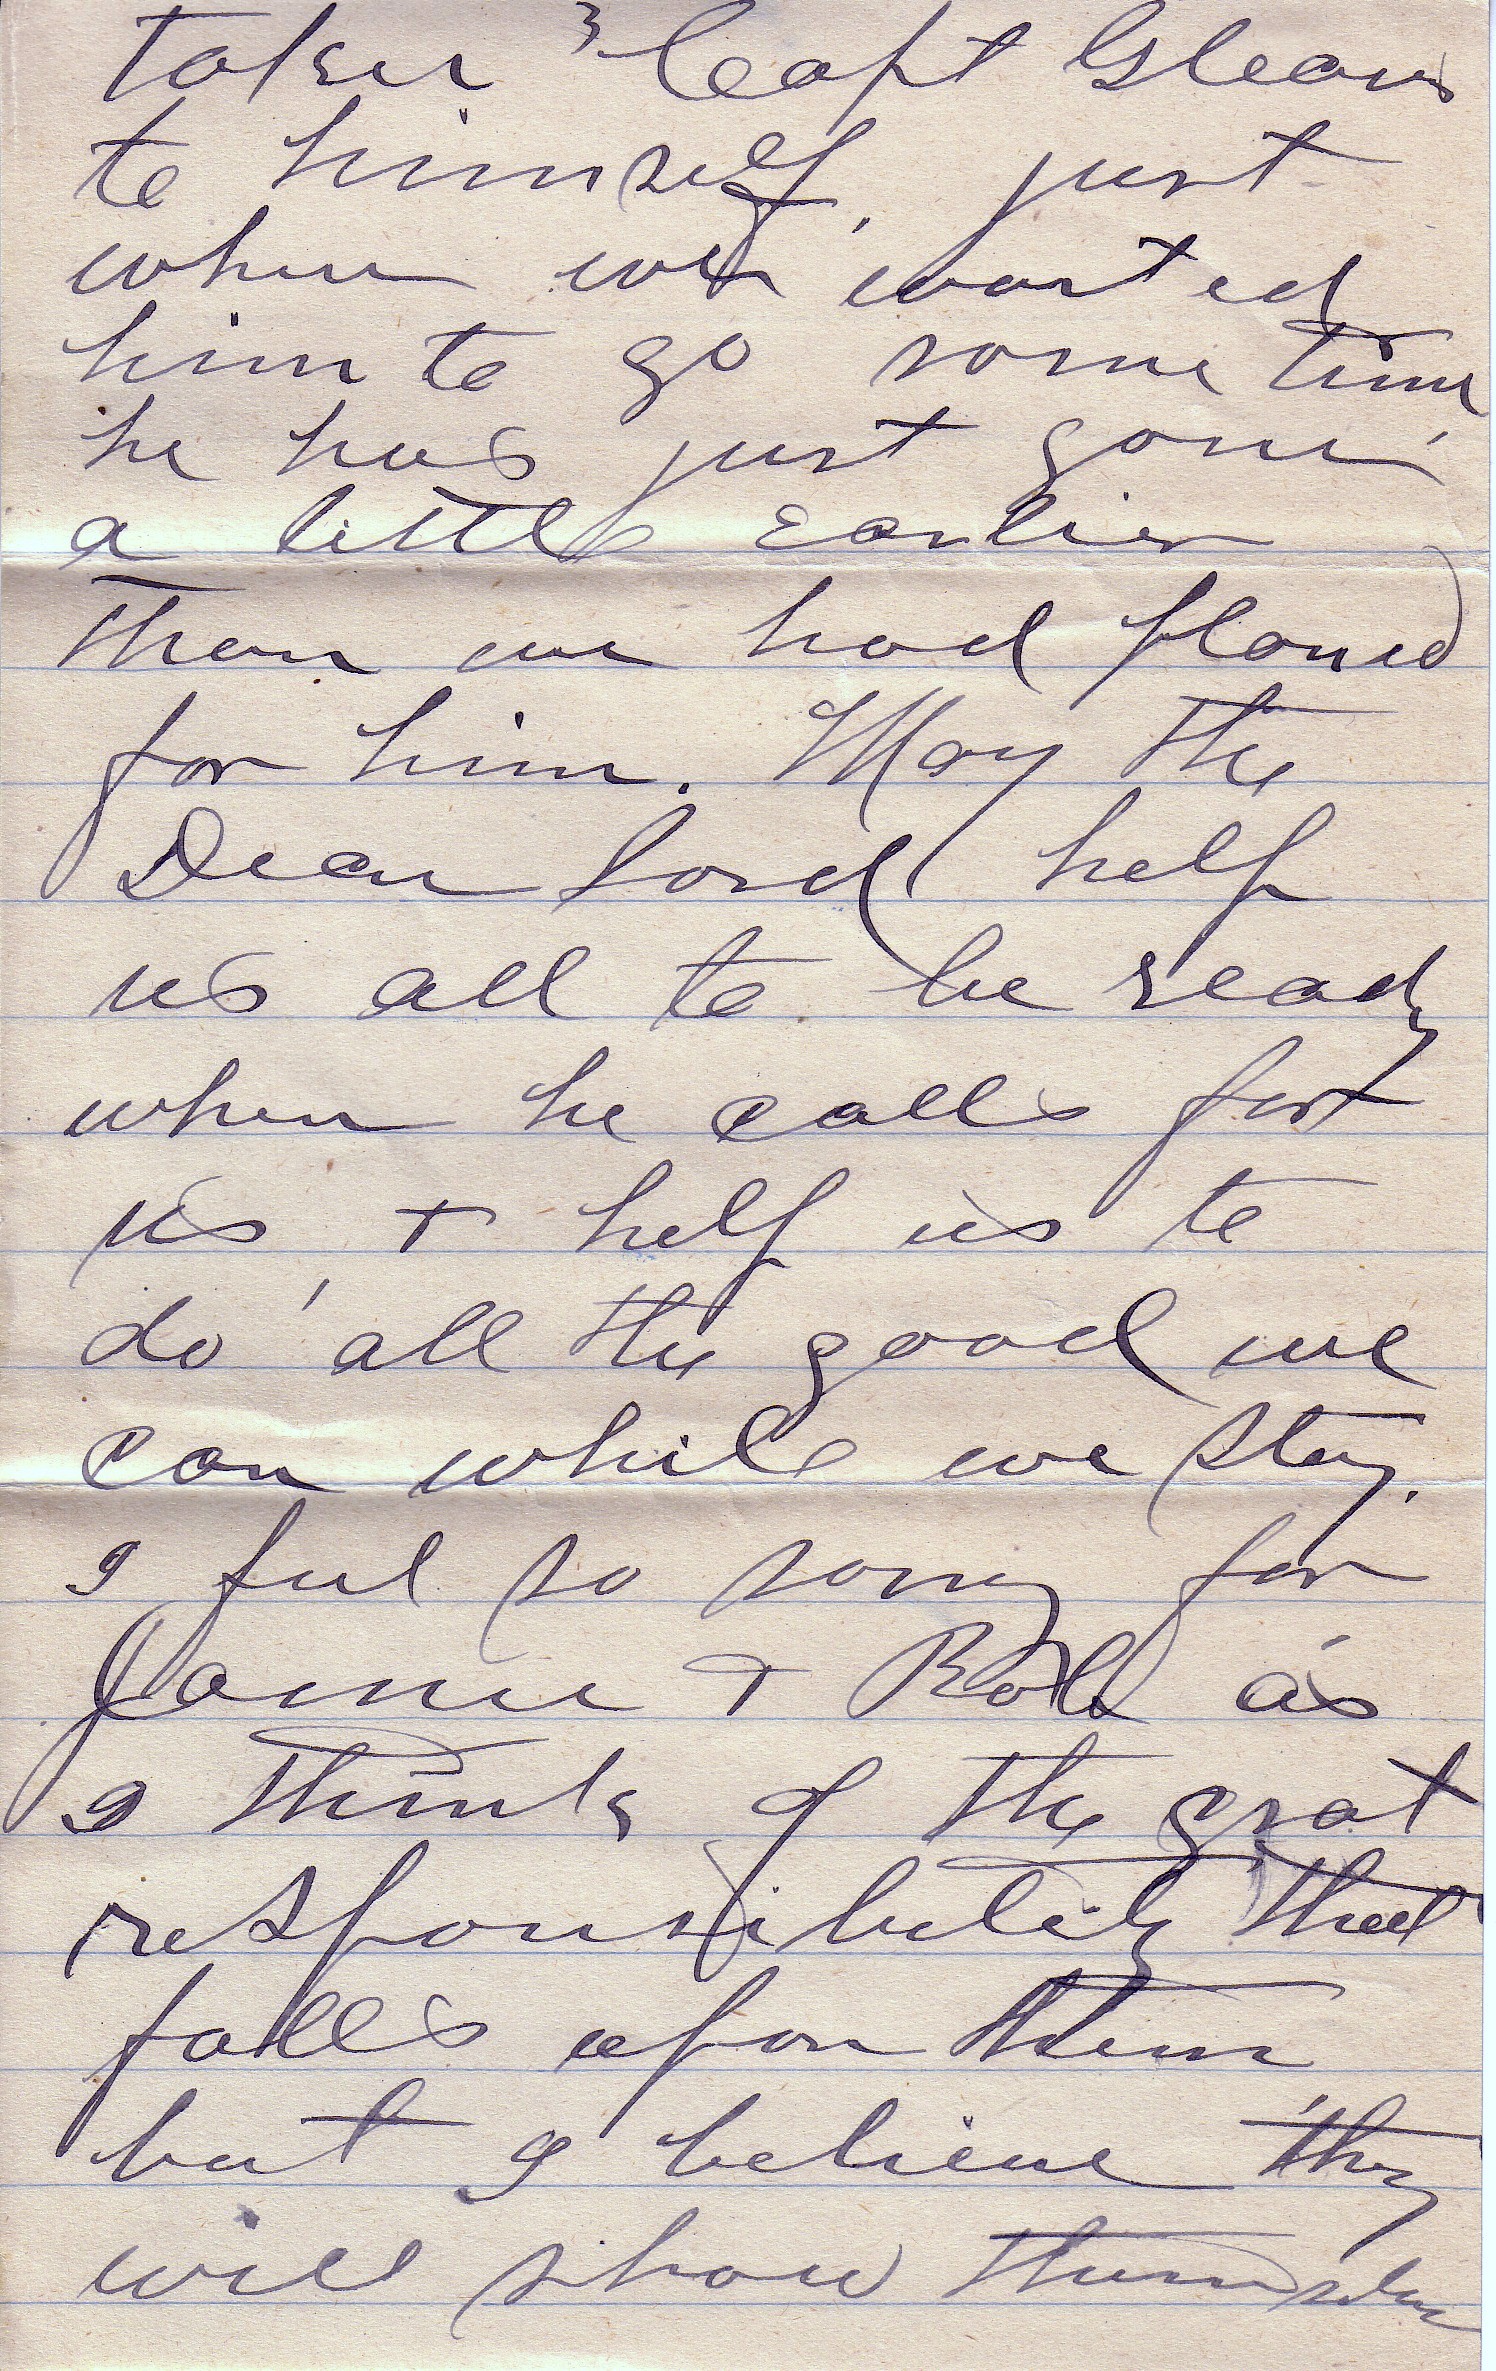 taken 3 Capt Gleaves
to himself, just
when we wanted
him to go some time
he has just gone,
a little earlier
than we had planed
for him. May the
Dear Lord help
us all to be ready
when he calls for
us + help us to
do all the good we
can while we stay.
I feel so sorry for
Jamie + Rob as
I think of the great
responsibility that
falls upon them
but I believe they
will show themselves